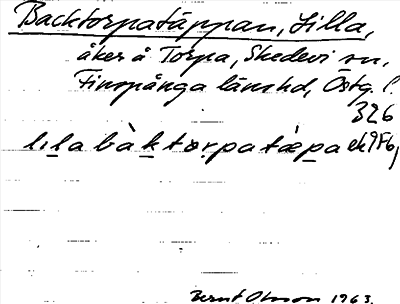 Backtorpatäppan, Lilla,
åker å Torpa, Skedevi sn,
Finspånga länshd, Östg. l.
326
lịlạ bàḳtọrpatæ̀pạ ek9F6,
Bernt Olsson 1963.